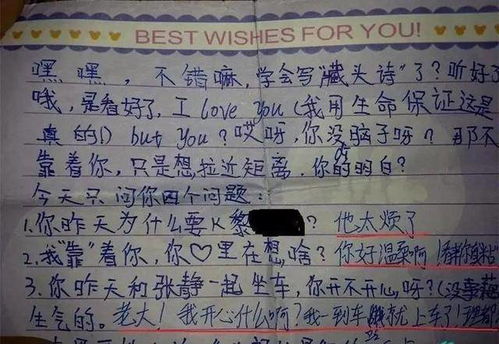 BEST WISHES FOR YOU!
嘿嘿，不错嘛，学会写"藏头诗"了？听好了
哦，是看好了，I love You（我用生命保证这是
真的！）but you？哎呀，你没脑子呀？那不
靠着你，只是想拉近距离，你的明白？
今天只问你四个问题：
1.你昨天为什么要K黎？他太烦了
2.我"靠"着你，你♡里在想啥？你好温柔啊！
3.你昨天和张静一起坐车，你开不开心呀？（没事
生气的。老大！我开心什么啊？我一到车就上车了！